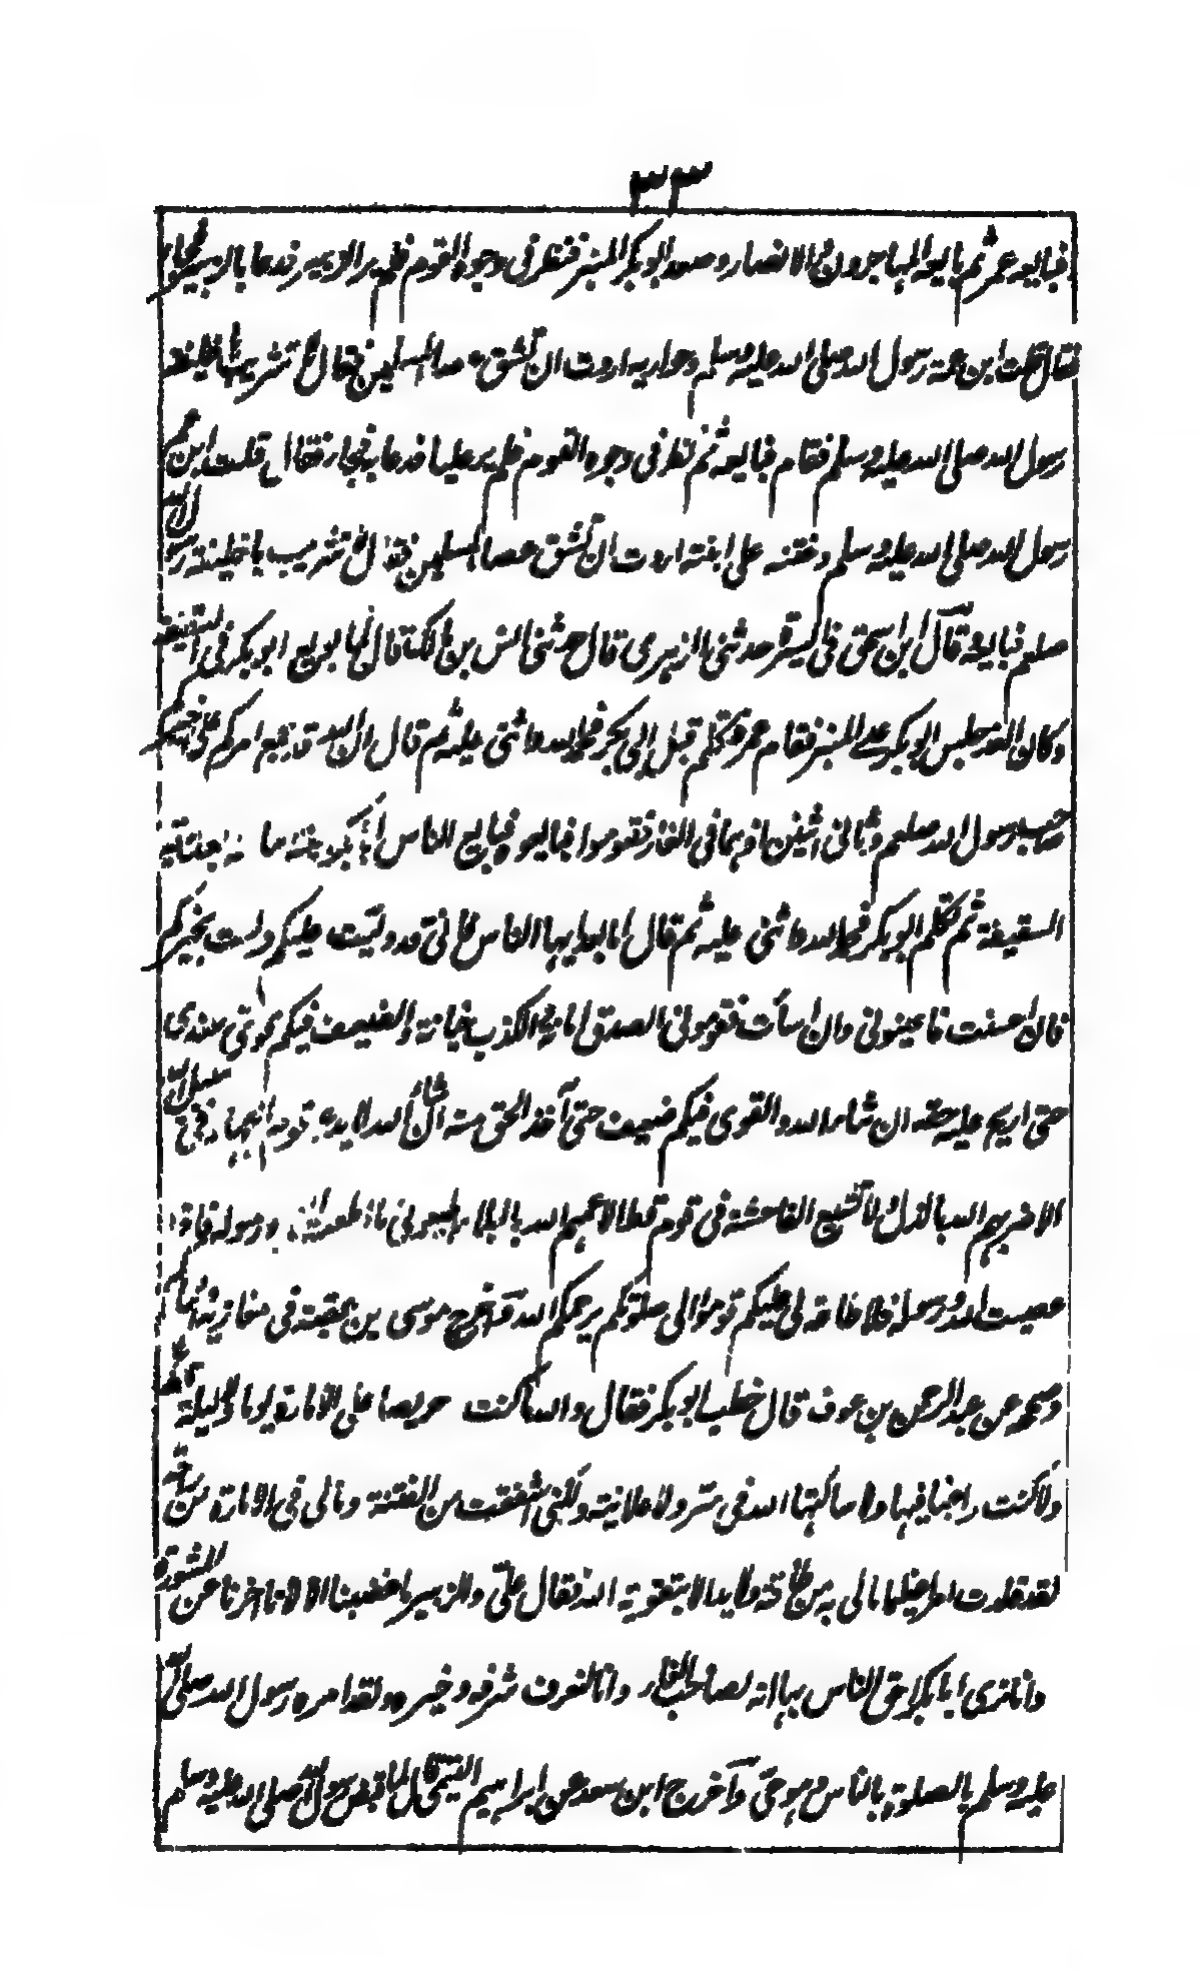 ٣٣
فبايعه عمر ثم بايعه المهاجرون والانصار وصعد ابو بكر المنبر فنظر فى وجوه القوم فلم ير الزبير فدعا بالزبير فجاء
فقال قلت ابن عمة رسول الله صلى الله عليه وسلم وحواريه اردت ان تشق عصا المسلمين فقال لا تثريب يا خليفة
رسول الله صلى الله عليه وسلم فقام فبايعه ثم نظر فى وجوه القوم فلم ير عليا فدعا به فجاء فقال قلت ابن عم
رسول الله صلى الله عليه وسلم وختنه على ابنته اردت ان تشق عصا المسلمين فقال لا تثريب يا خليفة رسول الله
صلعم فبايعه قال ابن اسحق فى السيرة حدثنى الزهرى قال حدثنى انس بن مالك قال لما بويع ابو بكر فى السقيفة
وكان الغد جلس ابو بكر على المنبر فقام عمر فتكلم قبل ابى بكر فحمد الله واثنى عليه ثم قال ان الله قد جمع امركم على خيركم
صاحب رسول الله صلعم وثانى اثنين اذ هما فى الغار فقوموا فبايعوه فبايع الناس ابا بكر بيعة عامة بعد بيعة
السقيفة ثم تكلم ابو بكر فحمد الله واثنى عليه ثم قال اما بعد ايها الناس فانى قد وليت عليكم ولست بخيركم
فان احسنت فاعينونى وان اسأت فقومونى الصدق امانة والكذب خيانة والضعيف فيكم قوى عندى
حتى اريح عليه حقه ان شاء الله والقوى فيكم ضعيف حتى آخذ الحق منه ان شاء الله لا يدع قوم الجهاد فى سبيل الله
الا ضربهم الله بالذل ولا تشيع الفاحشة فى قوم قط الا عمهم الله بالبلاء اطيعونى ما اطعت الله ورسوله فاذا
عصيت الله ورسوله فلا طاعة لى عليكم قوموا الى صلوتكم يرحمكم الله واخرج موسى بن عقبة فى مغازيه والحاكم
وصححه عن عبد الرحمن بن عوف قال خطب ابو بكر فقال والله ما كنت حريصا على الامارة يوما ولا ليلة قط
ولا كنت راغبا فيها ولا سالتها الله فى سر ولا علانية ولكنى اشفقت من الفتنة ومالى فى الامارة من راحة
لقد قلدت امرا عظيما مالى به من طاقة ولا يد الا بتقوية الله فقال على والزبير ما غضبنا الا لانا اخرنا عن المشورة
وانا نرى ابا بكر احق الناس بها انه لصاحب الغار وانا لنعرف شرفه وخيره ولقد امره رسول الله صلى الله
عليه وسلم بالصلوة بالناس وهو حى وآخرج ابن سعد عن ابراهيم التيمى قال لما قبض رسول الله صلى الله عليه وسلم